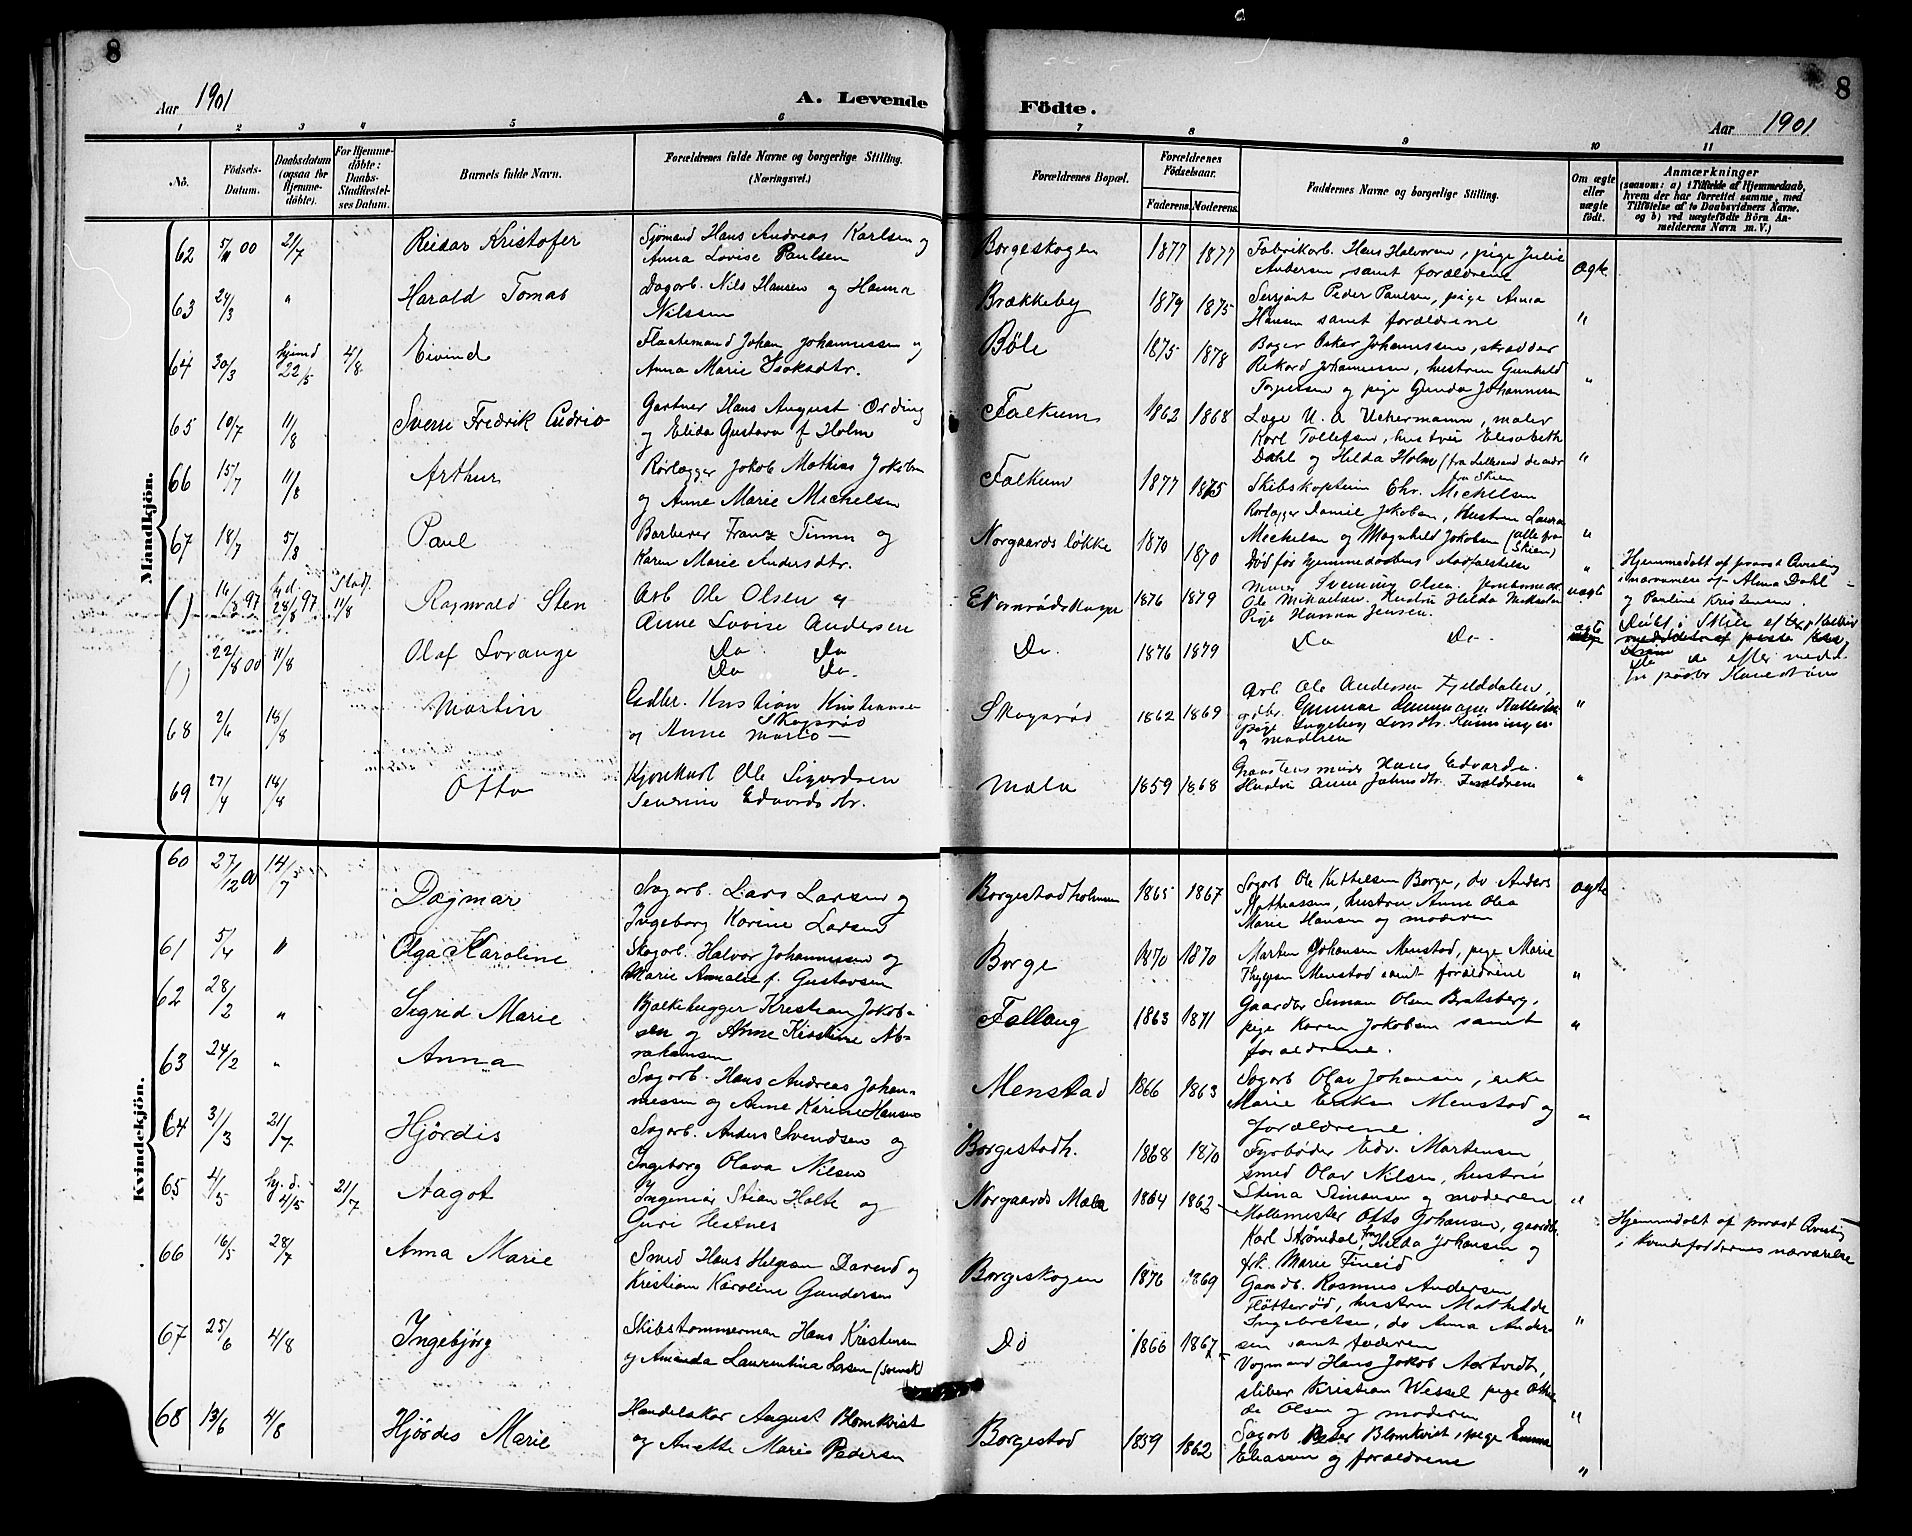 8
Aar 1901
A. Levende
1 2 3 4 5 6
No.
Födsels-Datum.
Daabsdatum (ogsaa for Hjemme-döbte).
For Hjemme-döbte: Daabs-Stadfæstel-ses Datum.
Barnets fulde Navn.
Forældrenes fulde Navne og borgerlige Stilling. (Næringsvei.)
Mandkjön.
62 5/11 00 21/7 Reidar Kristofer Sjömand Hans Andreas Karlsen og
Anna Lovise Paulsen
63 24/3 " Harald Tomas Dagarb. Nils Hansen og Hanna
Nilssen
64 30/3 hjemd 22/5 4/8 Eivind Flaatemand Johan Johannessen og
Anna Marie Isaksdtr.
65 10/7 11/8 Sverre Fredrik Gartner Hans August Ording
og Elida Gustava f Holm
66 15/7 11/8 Arthur Rörlægger Jokob Mathias Jokobsen
og Anne Marie Michelsen
67 18/7 5/8 Paul Barberer Franz Timm og
Karen Marie Andersdtr.
( ) 16/8 97 hjd. 28/8 97 Stadf. 11/8 Ragnvald Sten Arb Ole Olsen og
Anne Lovise Andersen
( ) 22/8 00 11/8 Olaf Lorange Do Do
Do Do.
68 2/6 18/8 Martin Kristian Kristiansen
Skogsrød
og Anne Marie
69 27/4 18/8 Otto Kjørekarl Ole Sigurdsen
Severine Edvardsdtr.
Kvindekjön.
60 27/12 00 14/7 Dagmar Sagarb. Lars Larsen og
Ingeborg Karine Larsen
61 5/4 " Olga Karoline Skogarb. Halvor Johannessen og
Marie Amalie f. Gustavsen
62 28/2 " Sigrid Marie Bjelkehugger Kristian Jokob-
sen og Anne Kirstine Ab-
rahamsen
63 24/2 " Anna Sagarb. Hans Andreas Johan-
nessen og Anne Karine Hansen
64 31/3 21/7 Hjördis Sagarb. Anders Svendsen og
Ingeborg Olava Nilsen
65 4/5 hj. d. 4/5 21/7 Aagot Ingeniör Stian Holte og
Guri Hestnes
66 16/5 28/7 Anna Marie Smed Hans Helgesen og
Kristiane Karoline Gundersen
67 25/6 4/8 Ingebjørg Skibstømmerman Hans Kristensen
og Amanda Laurentina Larsen (svensk)
68 13/6 4/8 Hjördis Marie Handelskar August Blomkvist
og Anette Marie Pedersen
8
Födte.
Aar 1901
7 8 9 10 11
Forældrenes Bopæl.
Forældrenes Födselsaar.
Faderens. Moderens.
Faddernes Navne og borgerlige Stilling.
Om ægte eller uægte födt.
Anmærkninger
(saasom: a) i Tilfælde af Hjemmedaab, hvem der har forrettet samme, med Tilföielse af to Daabsvidners Navne, og b) ved uægtefödte Börn Anmelderens Navn m. V.)
Borgeskogen 1877 1877 Fabrikarb. Hans Halvorsen, pige Julie
Andersen samt forældrene ægte
Brækkeby 1879 1875 Sersjant Peder Paulsen, pige Anna
Hansen samt forældrene "
Böle 1875 1878 Bager Oskar Johannessen, skrædder
Rikard Johannessen, hustru Gunhild
Torgersen og pige Gunda Johannesen "
Falkum 1862 1868 Læge U. A Uckermann, maler
Karl Tollefsen, hustru Elisabeth
Dahl og Hilda Holm "
Falkum 1877 1875 Skibskaptein Chr. Michelsen
Rørlægger Daniel Jokobsen, Hustru Laura
Michelsen og Magnhild Jokobsen (alle fra Skien) "
Norgaards løkke 1870 1870 Död för hjemmedaabens stadfæstelse "
1876 1879 Murer Svenning Olsen,
Ole Mikaelsen, Hustru Hilda Mikaelsen
Pige Hanna Jensen. uægte
Hjemmedøbt af provst Qvisling
i nærværelse af Alma Dahl
og Pauline Kristensen.
Do. 1876 1879 Do Do. ægte
Do do efter
Skogsrød 1862 1869 Arb Ole Andersen Fjelddalen,
gdbr. Gunnar
pige Ingeborg
og moderen "
Mæla 1859 1868 Hans Edvards.
Hustru Anne Forældrene "
Borgestadholmen 1865 1867 Sagarb Ole Kittelsen Borge, do Anders
Mathiassen, hustru Anne Olea
Marie Hansen og moderen ægte
Borge 1870 1870 Marten Johansen Menstad, pige Marie
Thygesen Menstad samt forældrene "
Follaug 1863 1871 Gaardbr Simon Olsen Bratsberg,
pige Karen Jokobsen samt
forældrene. "
Menstad 1866 1863 Sagarb Olav Johansen, enke
Marie Eriksen Menstad og
forældrene. "
Borgestadh. 1868 1870 Fyrbøder Edv. Martensen,
smed Olav Nilsen, hustru
Stina Simonsen og moderen "
Norgaards Mæla 1864 1862 Møllemester Otto Johansen, gaardb.
Karl Strømdal, fru Hilda Johansen og
frk. Marie Fineid
Hjemmedøbt af provst Qvisling
i kvindefaddernes nærværelse
Borgeskogen 1876 1869 Gaardb. Rasmus Andersen
Fløtterød, hustru Mathilde
Ingebretsen, do Anna Ander-
sen samt faderen "
Do 1866 1867 Vognmand Hans Jokob Aartvedt,
sliber Kristian Wessel pige
Olsen og moderen "
Borgestad 1859 1862 Sagarb Peder Blomkvist, pige Emma
Eliassen og forældrene "